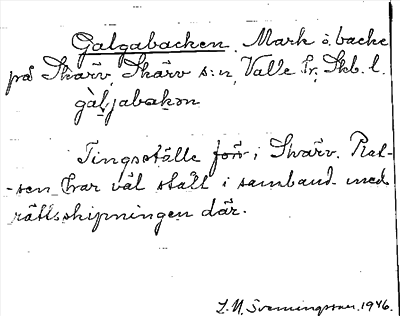 Galgabacken. Mark o. backe
på Skärv, Skärv s:n, Valle hr, Skb. l.
gàljabakən
Tingsställe förr i Skärv. Plat-
-sen har väl stått i samband med
rättsskipningen där.
L. N. Svenungsson. 1946.